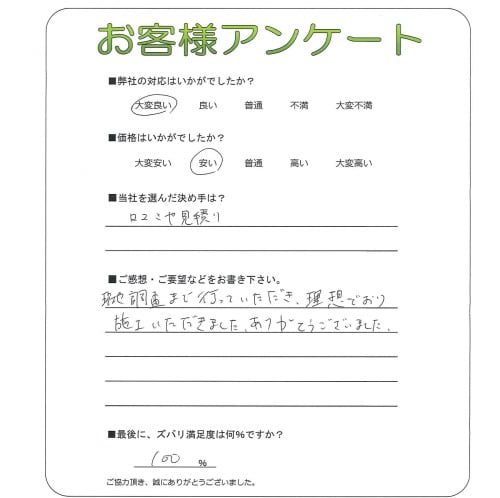 お客様アンケート
■弊社の対応はいかがでしたか?
大変良い 良い 普通 不満 大変不満
■価格はいかがでしたか?
大変安い 安い 普通 高い 大変高い
■当社を選んだ決め手は?
口コミや見積り
■ご感想・ご要望などをお書き下さい。
現地調査まで行っていただき、理想どおり
施工いただきました。ありがとうございました。
■最後に、ズバリ満足度は何%ですか?
100 %
ご協力頂き、誠にありがとうございました。